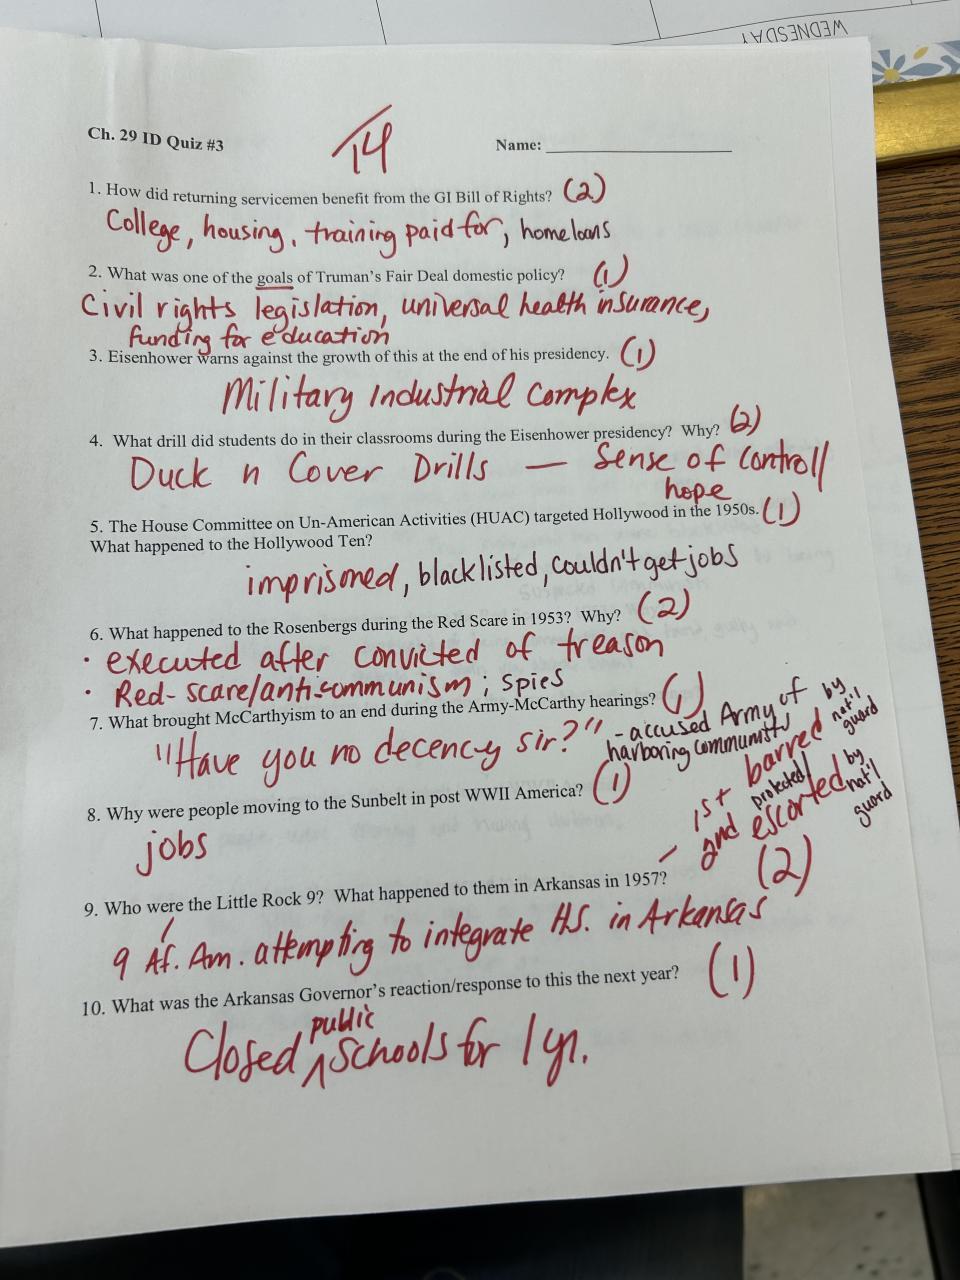 WEDNESDAY
Ch. 29 ID Quiz #3
/14
Name:
1. How did returning servicemen benefit from the GI Bill of Rights? (2)
College, housing, training paid for, home loans
2. What was one of the goals of Truman's Fair Deal domestic policy? (1)
Civil rights legislation, universal health insurance,
funding for education
3. Eisenhower warns against the growth of this at the end of his presidency. (1)
Military Industrial Complex
4. What drill did students do in their classrooms during the Eisenhower presidency? Why? (2)
Duck n Cover Drills — Sense of control/
hope
5. The House Committee on Un-American Activities (HUAC) targeted Hollywood in the 1950s. (1)
What happened to the Hollywood Ten?
imprisoned, blacklisted, couldn't get jobs
6. What happened to the Rosenbergs during the Red Scare in 1953? Why? (2)
• executed after convicted of treason
• Red-scare/anti-communism; spies
7. What brought McCarthyism to an end during the Army-McCarthy hearings? (1)
"Have you no decency sir?" - accused Army of
harboring communists
8. Why were people moving to the Sunbelt in post WWII America? (1)
jobs
1st barred by nat'l guard
2nd protected/escorted by nat'l guard
9. Who were the Little Rock 9? What happened to them in Arkansas in 1957? (2)
9 Af. Am. attempting to integrate H.S. in Arkansas
10. What was the Arkansas Governor's reaction/response to this the next year? (1)
Closed public schools for 1 yr.